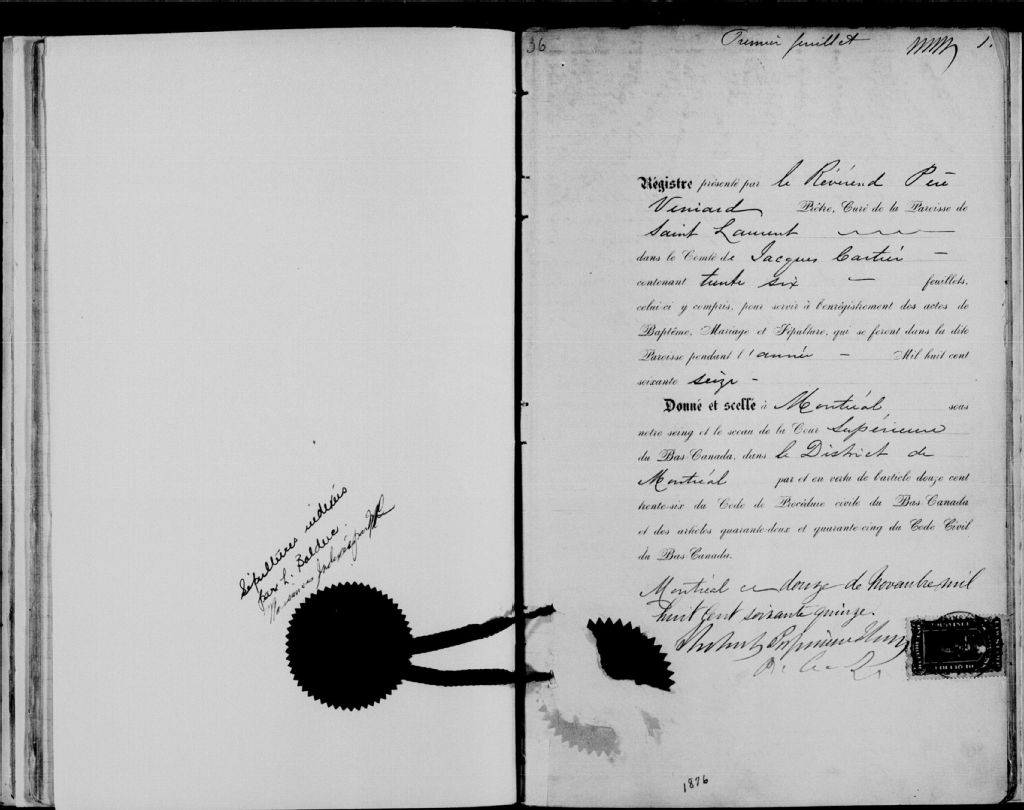 Sépultures indexées
par L. Balduc
36
Premier feuillet 1.
Régistre présenté par le Révérend Père
Veniard Prêtre, Curé de la Paroisse de
Saint Laurent
dans le Comté de Jacques Cartier —
contenant trente six — feuillets,
celui-ci y compris, pour servir à l'enrégistrement des actes de
Baptême, Mariage et Sépulture, qui se feront dans la dite
Paroisse pendant l'année — Mil huit cent
soixante seize —
Donné et scellé à Montréal sous
notre seing et le sceau de la Cour Supérieure
du Bas-Canada, dans le District de
Montréal par et en vertu de l'article douze cent
trente-six du Code de Procédure civile du Bas-Canada
et des articles quarante-deux et quarante-cinq du Code Civil
du Bas-Canada.
Montréal ce douze de Novembre mil
huit Cent soixante quinze.
1876